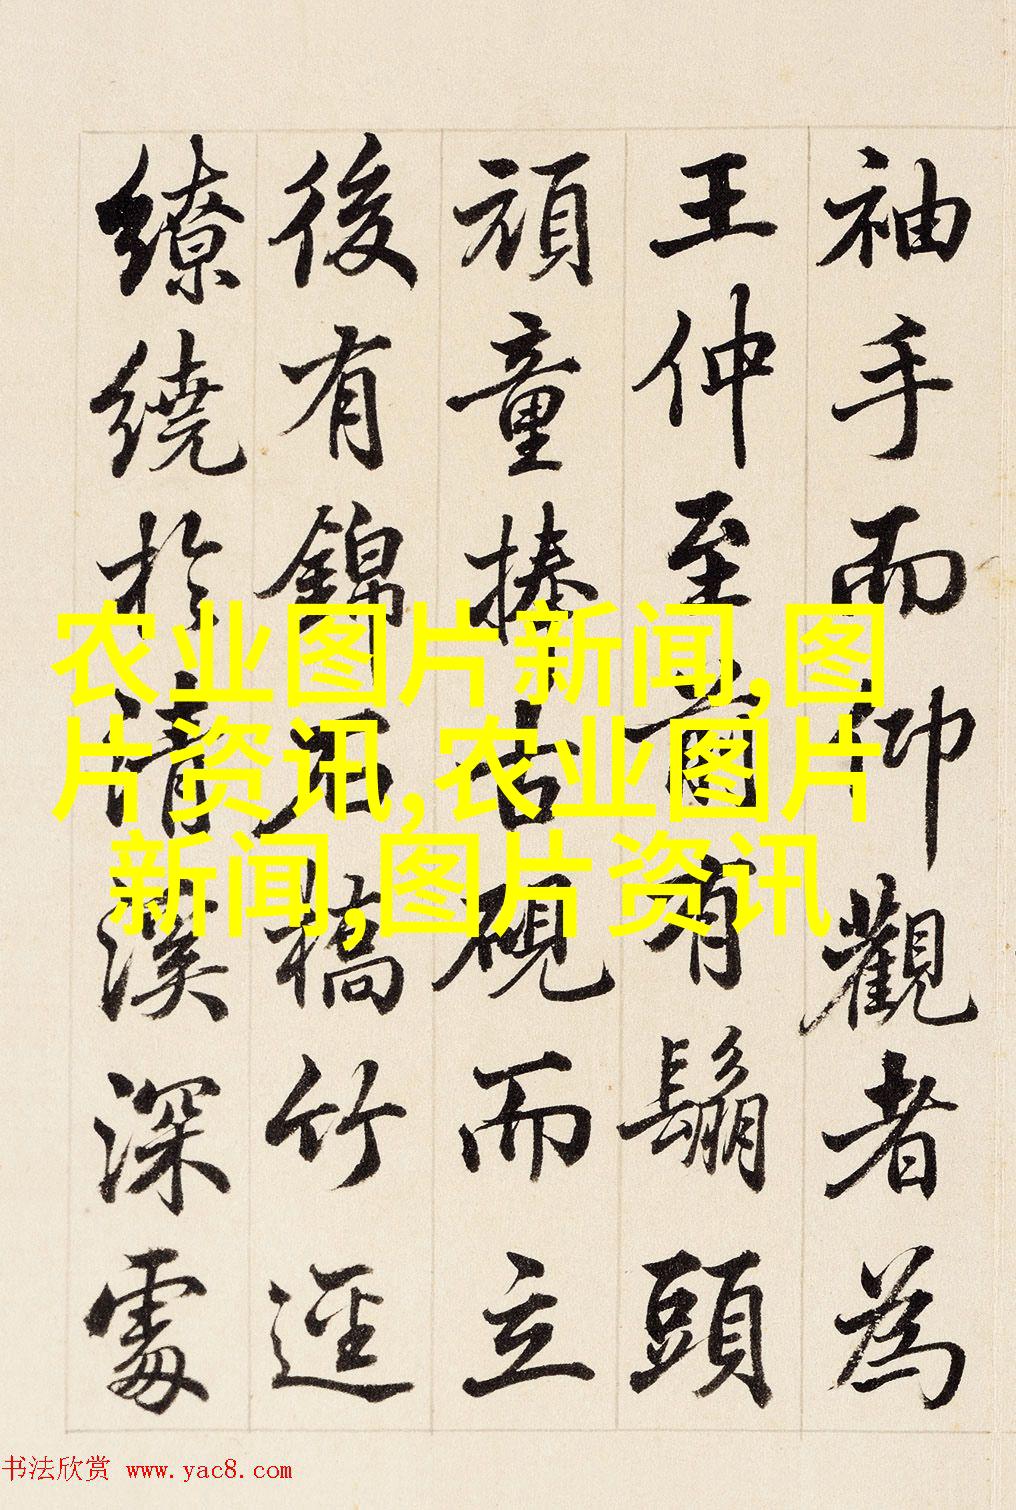 袖手而仰觀者為
王仲至前有鬅頭
頑童捧古硯而立
後有錦石橋竹逕
繚繞於清溪深處
农业图片新闻,图
片资讯,农业图片
新闻,图片资讯
书法欣赏 www.yac8.com